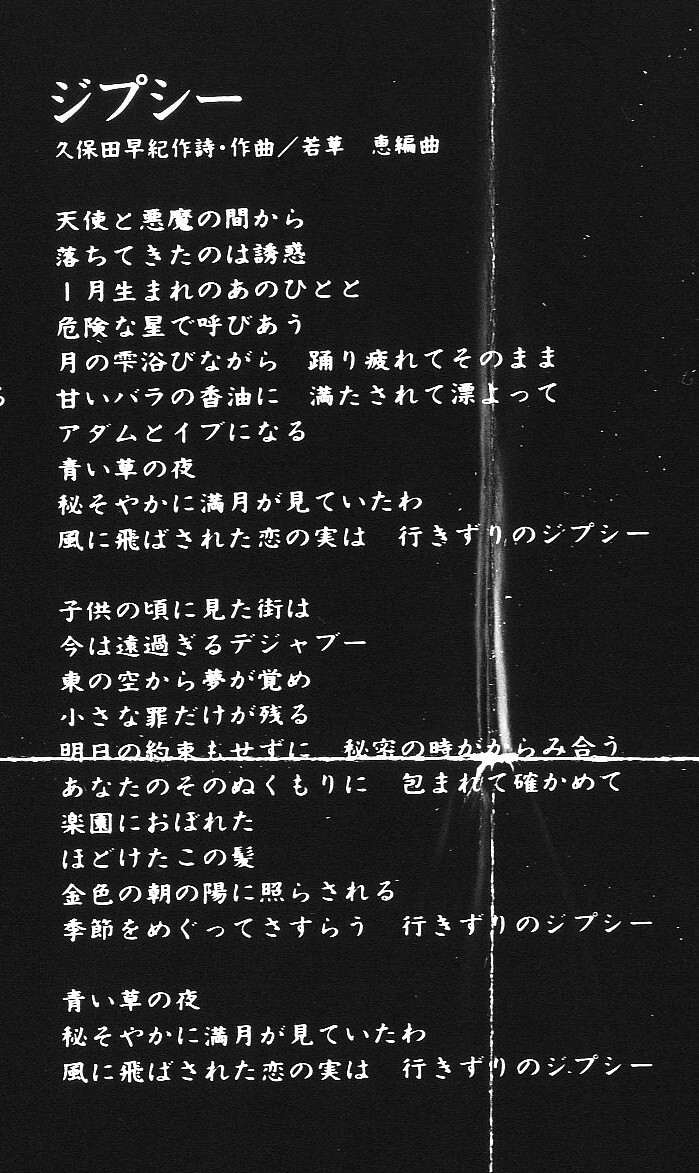 ジプシー
久保田早紀作詩・作曲／若草　恵編曲
天使と悪魔の間から
落ちてきたのは誘惑
1月生まれのあのひとと
危険な星で呼びあう
月の雫浴びながら　踊り疲れてそのまま
甘いバラの香油に　満たされて漂よって
アダムとイブになる
青い草の夜
秘そやかに満月が見ていたわ
風に飛ばされた恋の実は　行きずりのジプシー
子供の頃に見た街は
今は遠過ぎるデジャブー
東の空から夢が覚め
小さな罪だけが残る
明日の約束もせずに　秘密の時がからみ合う
あなたのそのぬくもりに　包まれて確かめて
楽園におぼれた
ほどけたこの髪
金色の朝の陽に照らされる
季節をめぐってさすらう　行きずりのジプシー
青い草の夜
秘そやかに満月が見ていたわ
風に飛ばされた恋の実は　行きずりのジプシー